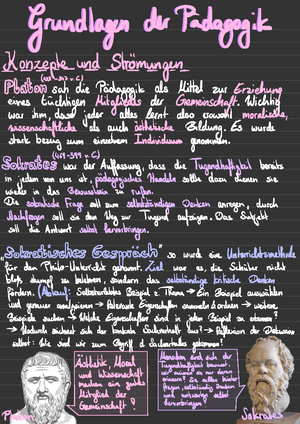 Grundlagen der Pädagogik
Konzepte und Strömungen
Platon sah die Pädagogik als Mittel zur Erziehung
eines tüchtigen Mitglieds der Gemeinschaft. Wichtig
war ihm, dass jeder alles lernt also sowohl moralische,
wissenschaftliche als auch ästhetische Bildung. Es wurde
stark bezug zum einzelnem Individuum genommen.
Sokrates (469-399 v. C) war der Auffassung, dass die Tugendhaftigkeit bereits
in jedem von uns ist, pädagogisches Handeln sollte dazu dienen sie
wieder in das Bewusstsein zu rufen.
Die sokratische Frage soll zum selbstständigen Denken anregen, durch
Nachfragen soll sie den Weg zur Tugend aufzeigen. Das Subjekt
soll die Antwort selbst hervorbringen.
"Sokratisches Gespräch" so wurde eine Unterrichtsmethode
für den Philo-Unterricht genannt. Ziel war es, die Schüler nicht
bloß dumpf zu belehren, sondern das selbstständige kritische Denken
fördern. (Ablauf: Selbsterlebtes Beispiel z. Thema → Ein Beispiel auswählen
und genauer analysieren → Relevante Eigenschaften sammeln & ordnen → weitere
Beispiele suchen → Welche Eigenschaften sind in jedem Beispiel zu erkennen?
→ Wodurch zeichnet sich der Begriff Sicherheit aus? → Reflexion der Diskussion
selbst: Wie sind wir zum Begriff d. Sicherheit gekommen?
Ästhetik, Moral
und Wissenschaft
machen ein gutes
Mitglied der
Gemeinschaft!
Menschen sind sich der
Tugendhaftigkeit bewusst,
wir müssen sie nur daran
erinnern! Sie sollen hinter
fragen, selbstständig Denken
und Antworten selbst
hervorbringen!
Platon
Sokrates